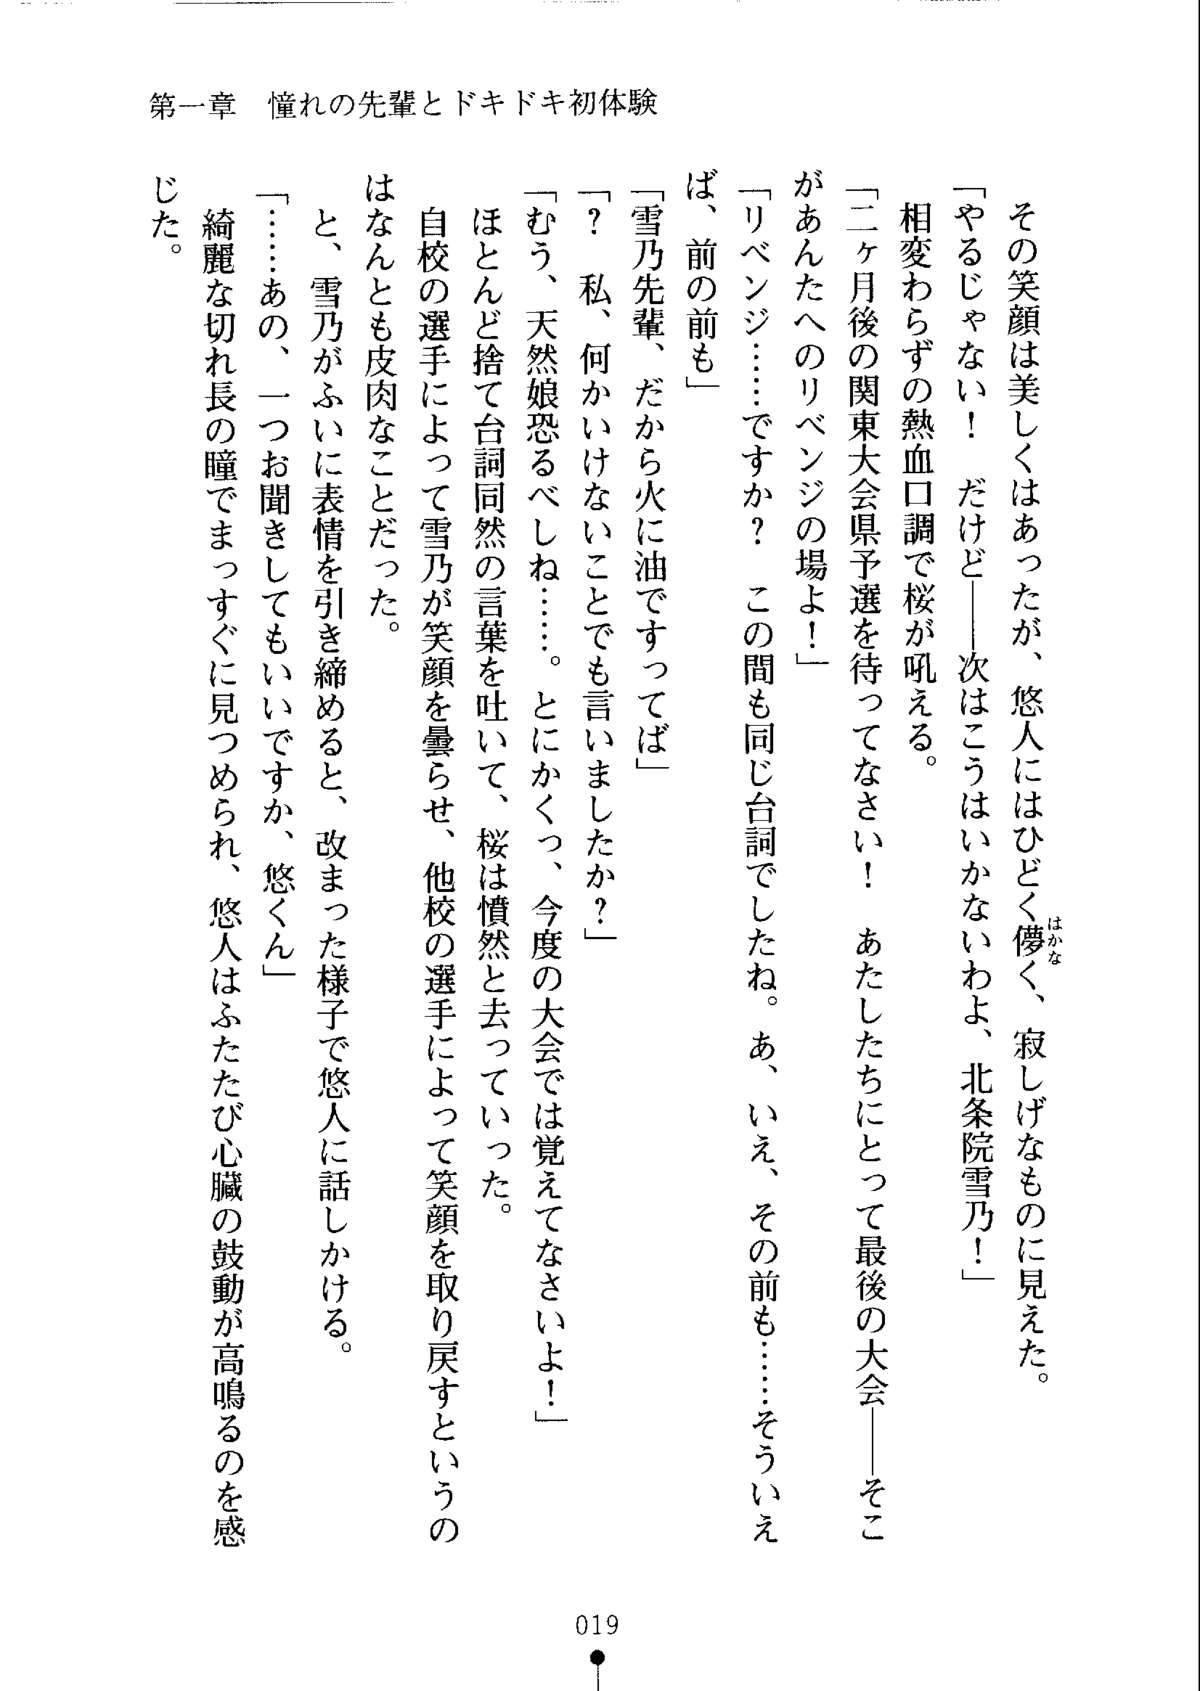 第一章　憧れの先輩とドキドキ初体験
　その笑顔は美しくはあったが、悠人にはひどく儚く、寂しげなものに見えた。
はかな
「やるじゃない！　だけど――次はこうはいかないわよ、北条院雪乃！」
　相変わらずの熱血口調で桜が吼える。
「二ヶ月後の関東大会県予選を待ってなさい！　あたしたちにとって最後の大会――そこ
があんたへのリベンジの場よ！」
「リベンジ……ですか？　この間も同じ台詞でしたね。あ、いえ、その前も……そういえ
ば、前の前も」
「雪乃先輩、だから火に油ですってば」
「？　私、何かいけないことでも言いましたか？」
「むう、天然娘恐るべしね……。とにかくっ、今度の大会では覚えてなさいよ！」
　ほとんど捨て台詞同然の言葉を吐いて、桜は憤然と去っていった。
　自校の選手によって雪乃が笑顔を曇らせ、他校の選手によって笑顔を取り戻すというの
はなんとも皮肉なことだった。
　と、雪乃がふいに表情を引き締めると、改まった様子で悠人に話しかける。
「……あの、一つお聞きしてもいいですか、悠くん」
　綺麗な切れ長の瞳でまっすぐに見つめられ、悠人はふたたび心臓の鼓動が高鳴るのを感
じた。
019